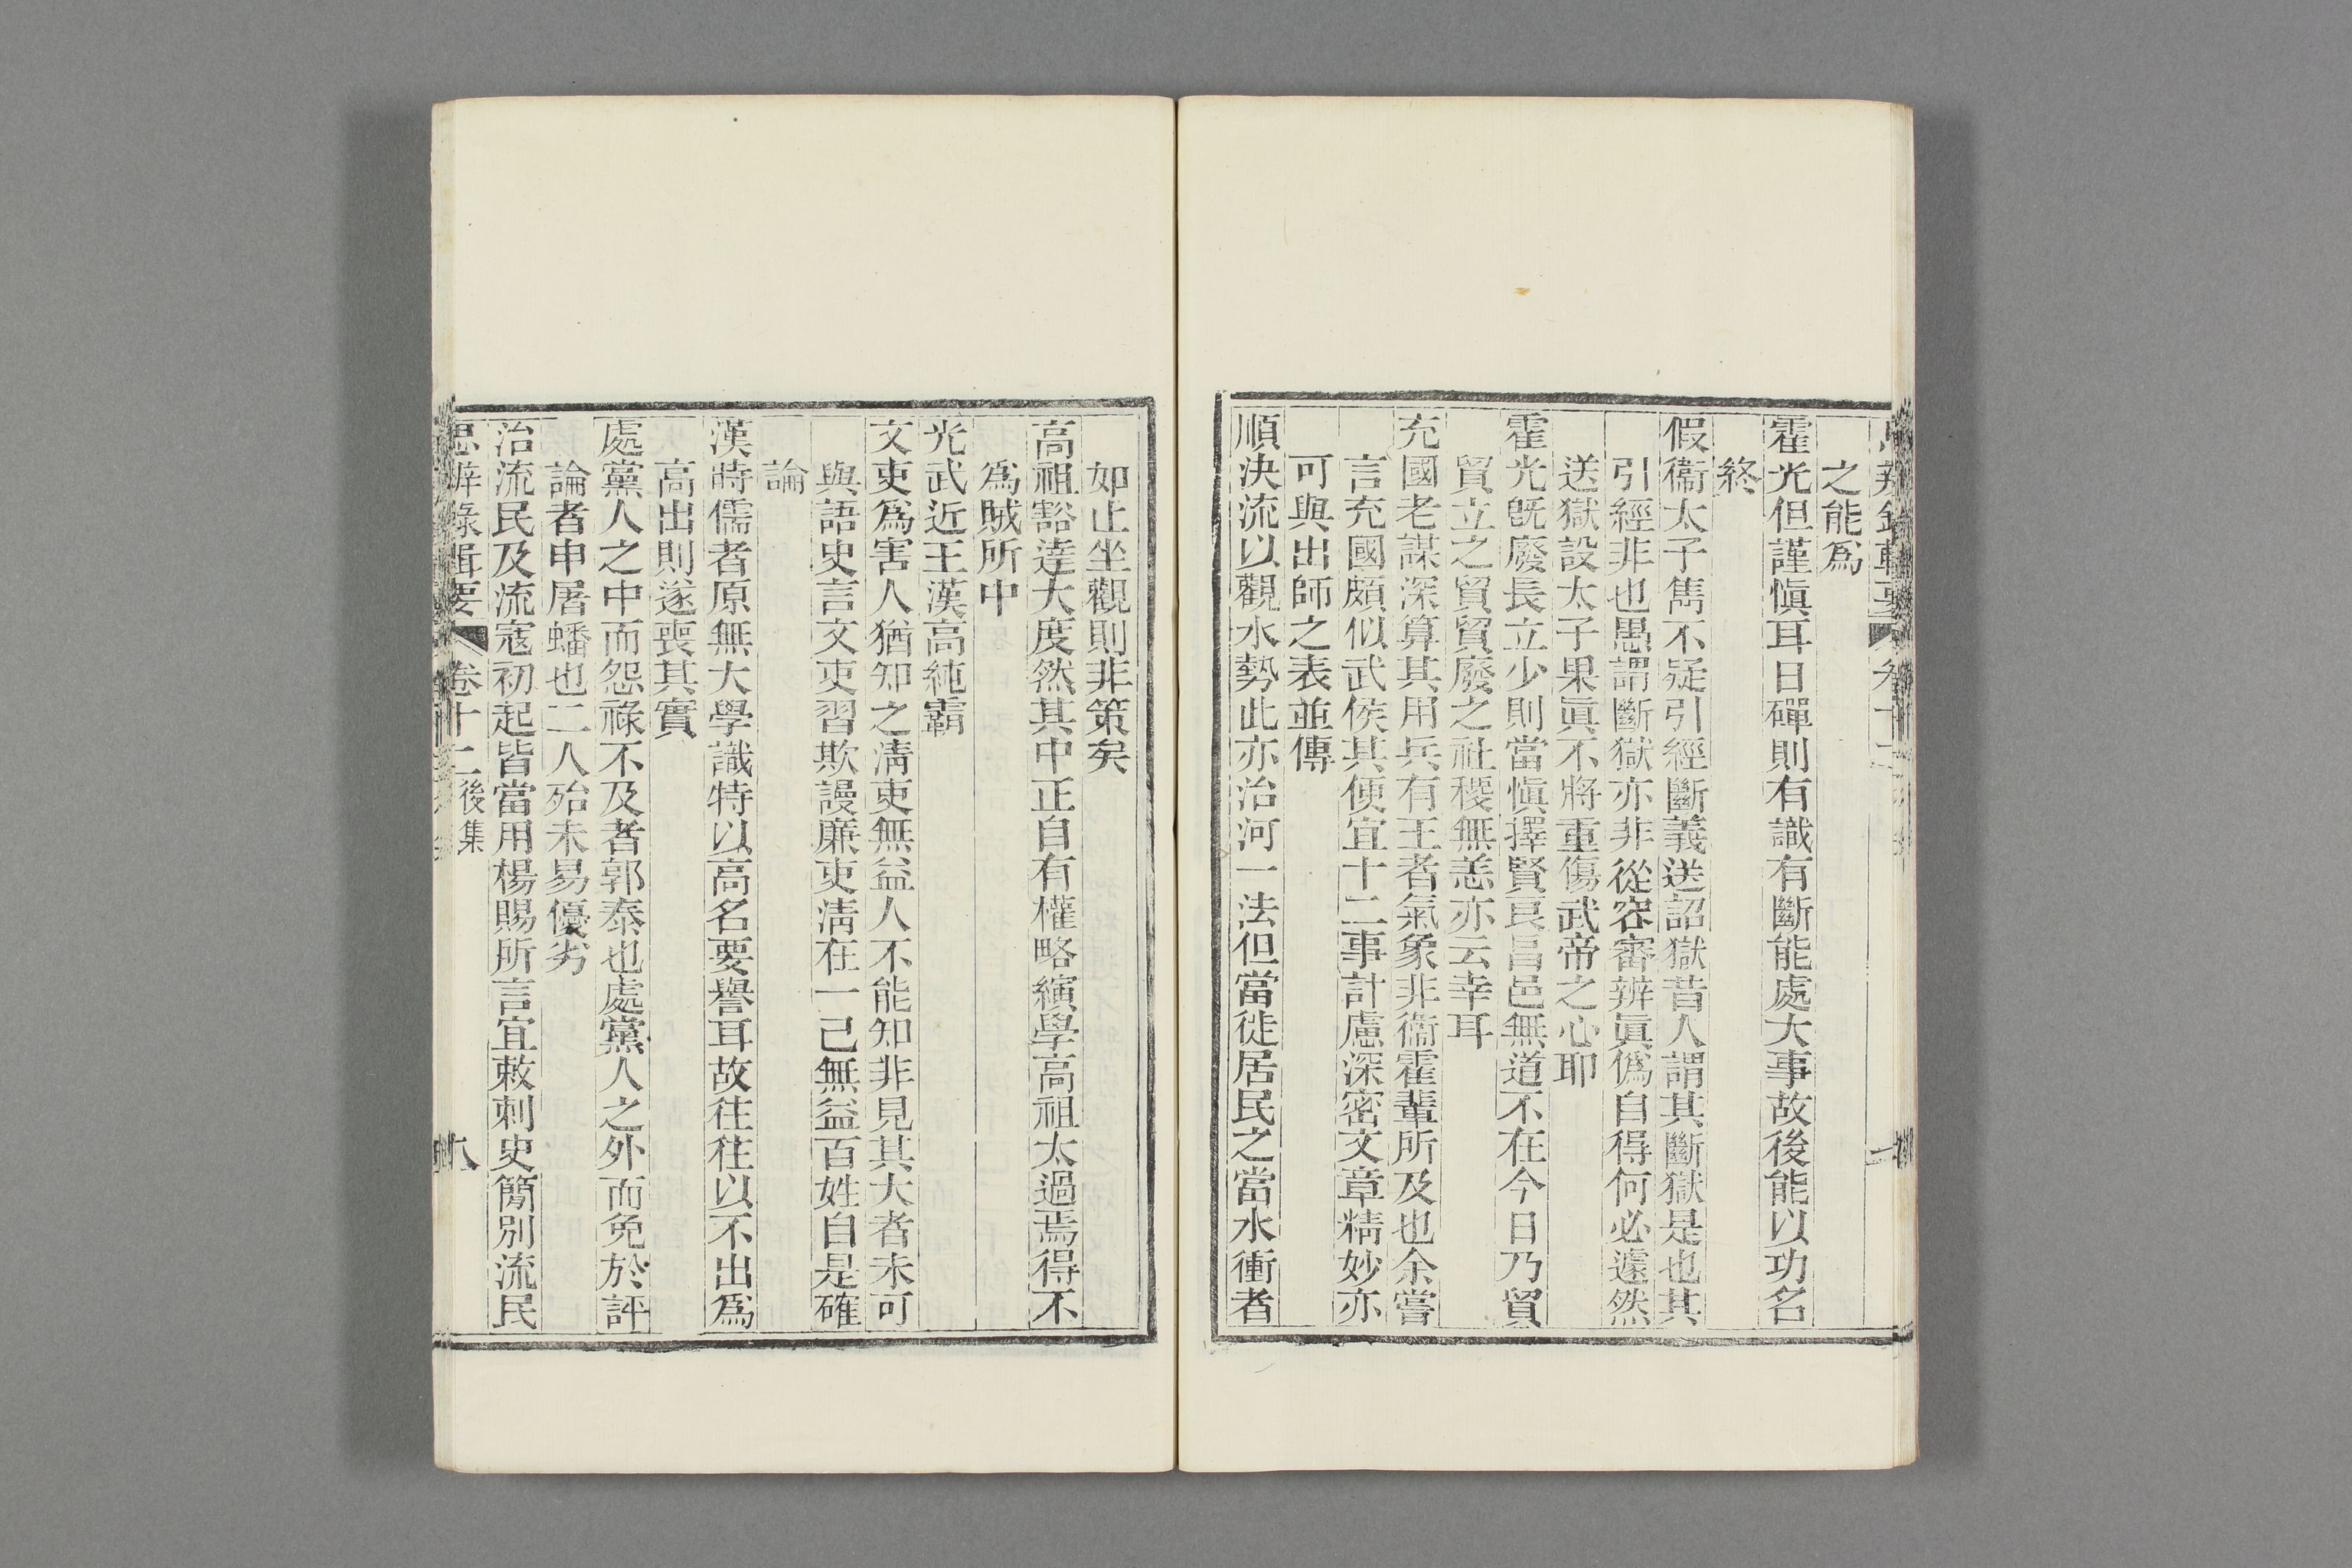 之能爲
霍光但謹愼耳日磾則有識有斷能處大事故後能以功名
終
假衞太子雋不疑引經斷義送詔獄昔人謂其斷獄是也其
引經非也愚謂斷獄亦非從容審辨眞僞自得何必遽然
送獄設太子果眞不將重傷武帝之心耶
霍光旣廢長立少則當愼擇賢良昌邑無道不在今日乃貿
貿立之貿貿廢之社稷無恙亦云幸耳
充國老謀深算其用兵有王者氣象非衞霍輩所及也余嘗
言充國頗似武侯其便宜十二事計慮深密文章精妙亦
可與出師之表並傳
順決流以觀水勢此亦治河一法但當徙居民之當水衝者
如止坐觀則非策矣
高祖豁達大度然其中正自有權略縯學高祖太過焉得不
爲賊所中
光武近王漢高純霸
文吏爲害人猶知之淸吏無益人不能知非見其大者未可
與語史言文吏習欺謾廉吏淸在一己無益百姓自是確
論
漢時儒者原無大學識特以高名要譽耳故往往以不出爲
高出則遂喪其實
處黨人之中而怨祿不及者郭泰也處黨人之外而免於評
論者申屠蟠也二人殆未易優劣
治流民及流寇初起皆當用楊賜所言宜敕刺史簡別流民
思辨錄輯要 卷十二後集 八